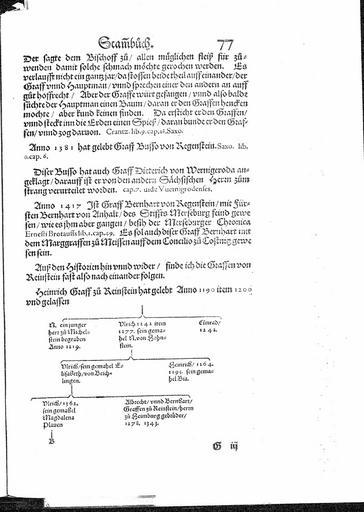 Stam̃bůch. 77
Der sagte dem Bischoff zů/ allen můglichen fleiß für zů-
wenden damit solche schmach möchte gerochen werden. Es
verlaufft nicht ein gantz jar/ da stossen beide theil auff einander/ der
Graff vnnd Hauptman/ vnd sprechen einer den andern an auff
gůt hoffrecht/ Aber der Graff würt gefangen/ vnnd also balde
sůchte der Hauptman einen Baum/ daran er den Graffen hencken
möchte/ aber kund keinen finden. Da ersticht er den Graffen/
vnnd steckt inn die Erden einen Spieß/ daran bundt er den Graf-
fen/ vnnd zog daruon. Crantz. lib. 9. cap. 18. Saxo.
Anno 1381 hat gelebt Graff Busso von Regenstein. Saxo. lib.
10. cap. 6.
Diser Busso hat auch Graff Dietterich von Wernigeroda an-
geklagt/ darauff ist er von den andern Sächsischen Herrn zům
strang verurteilet worden. cap. 7. vide Vuernigrodenses.
Anno 1417 Ist Graff Bernhart von Regenstein/ mit Für-
sten Bernhart von Anhalt/ des Stiffts Merseburg feind gewe
sen/ wie es jhm aber gangen/ besihe der Merseburger Chronica
Ernesti Brotauffs lib. 2. cap. 29. Es sol auch diser Graff Bernhart mit
dem Marggraffen zů Meissen auff dem Concilio zů Costnitz gewe
sen sein.
Auß den Historien hin vnnd wider/ finde ich die Graffen von
Reinstein fast also nach einander folgen.
Heinrich Graff zů Reinstein hat gelebt Anno 1190 item 1200
vnd gelassen
N. ein junger
herr zů Michel-
stein begraben
Anno 1219.
Vlrich 1242 item
1277. sein gema-
hel N. von Hohn-
stein.
Conrad/
1242.
Vlrich/ sein gemahel E-
lisabeth/ von Beich-
lingen.
Heinrich/ 1264.
1291. sein gema-
hel Ida.
Vlrich/ 1362.
sein gemahel
Magdalena
Plauen
Albrecht/ vnnd Bernhart/
Graffen zů Reinstein/ herrn
zů Heimburg gebrůder/
1278. 1343.
B
G iij